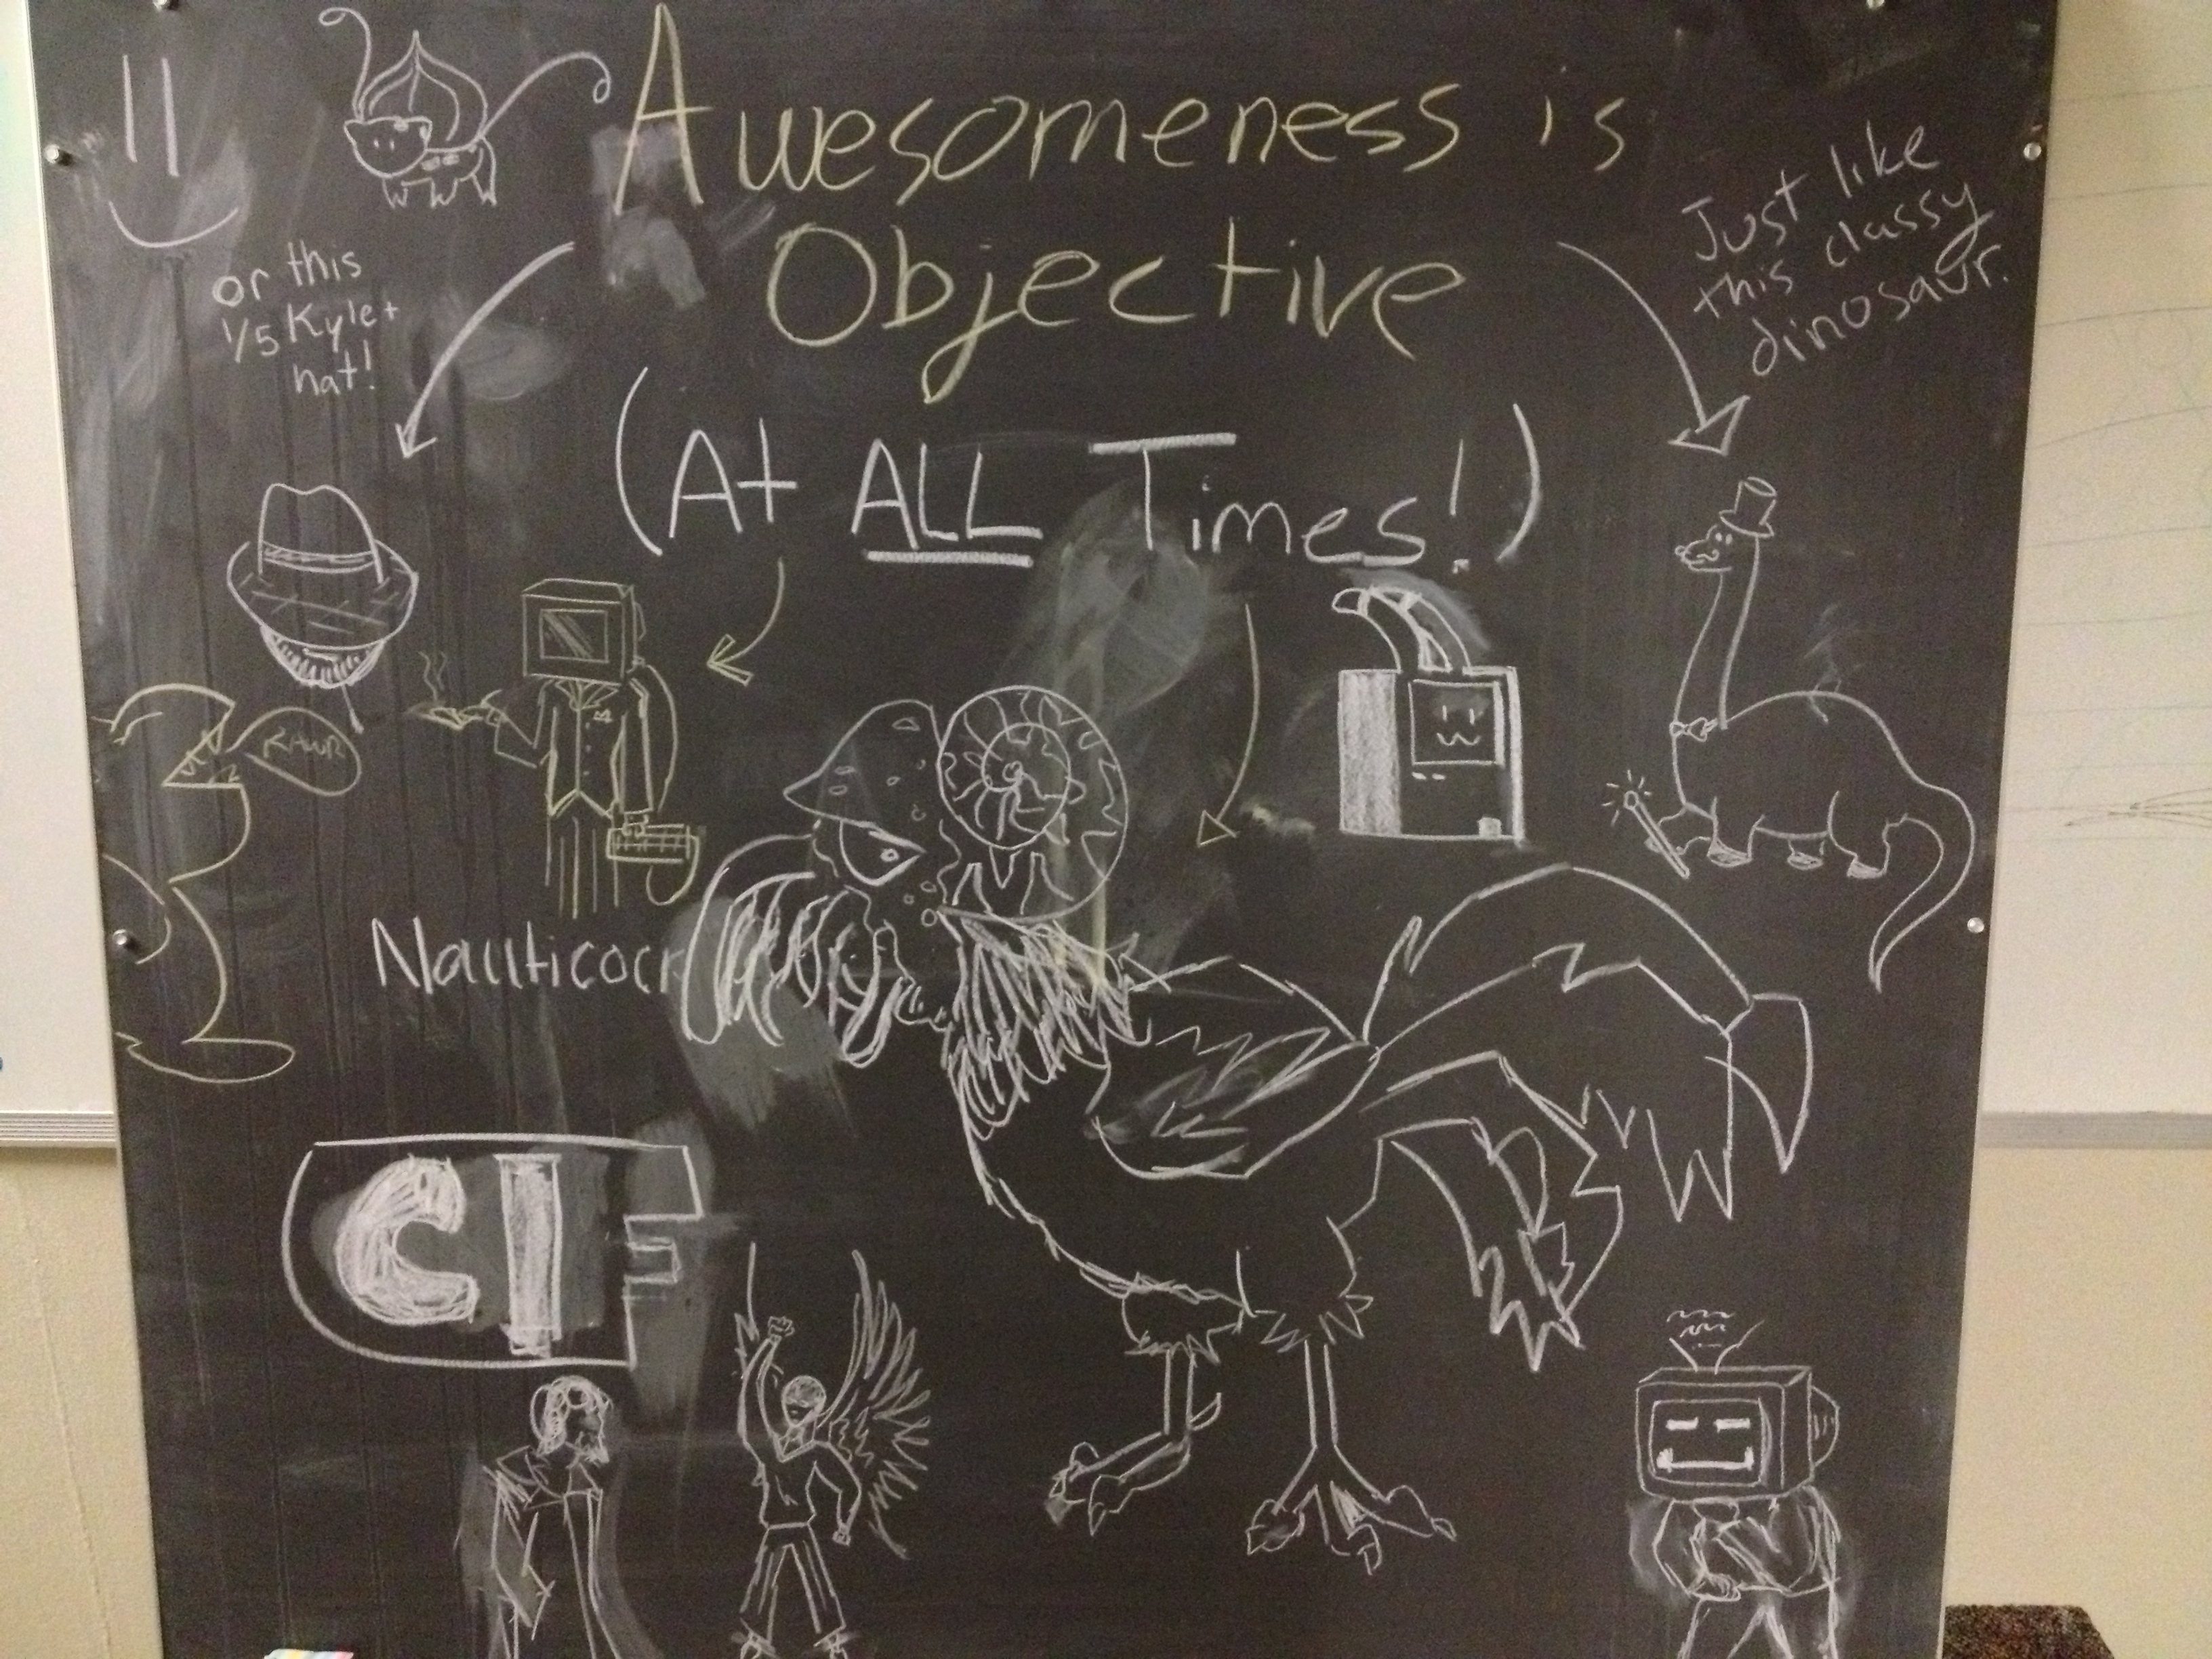 Awesomeness is
Objective
(At ALL Times!)
Just like
this classy
dinosaur.
or this
1/5 Kyle+
hat!
RAWR
Nauticock
CIF